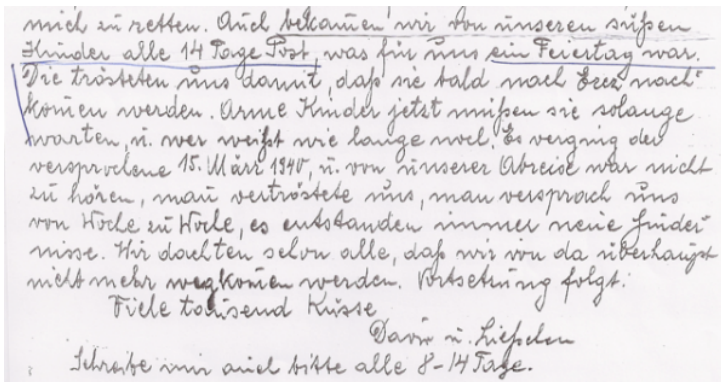 mich zu retten. Auch bekamen wir von unseren süßen
Kinder alle 14 Tage Post, was für uns ein Feiertag war.
Die trösteten uns damit, daß sie bald nach Erez nach-
komen werden. Arme Kinder jetzt müßen sie solange
warten, u. wer weißt wie lange noch. Es verging der
versprochene 15. März 1940, u. von unserer Abreise war nicht
zu hören, man vertröstete uns, man versprach uns
von Woche zu Woche, es entstanden immer neue Hinder-
nisse. Wir dachten schon alle, daß wir von da überhaupt
nicht mehr wegkomen werden. Vortsetzung folgt.
Fiele tausend Küsse
David u.
Schreibe mir auch bitte alle 8-14 Tage.